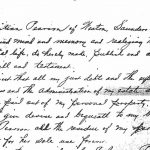 Pearson of Weston, Saunders
sound mind and memory and realizing
life, do hereby make, publish and
will and testament.
that all my just debts and the
and the administration of my estate
paid out of my personal property,
give devise and bequeath to my
Pearson all the residue of my
for her sole use forever